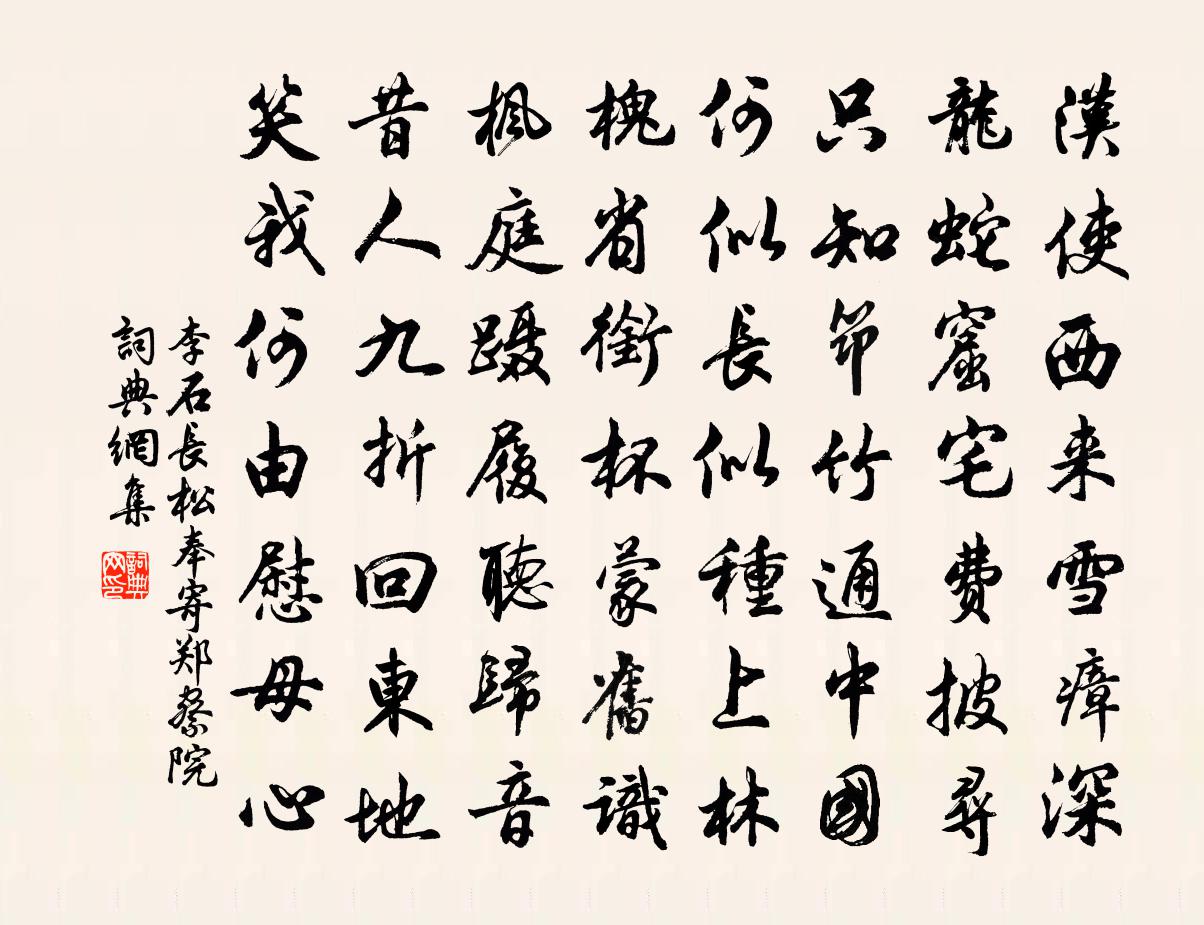 漢使西来雪瘴深
龍蛇窟宅費披尋
只知筇竹通中國
何似長似種上林
槐省銜杯蒙舊識
楓庭躡履聽歸音
昔人九折回東地
笑我何由慰母心
李石長松奉寄郑察院
詞典網集
詞典网印